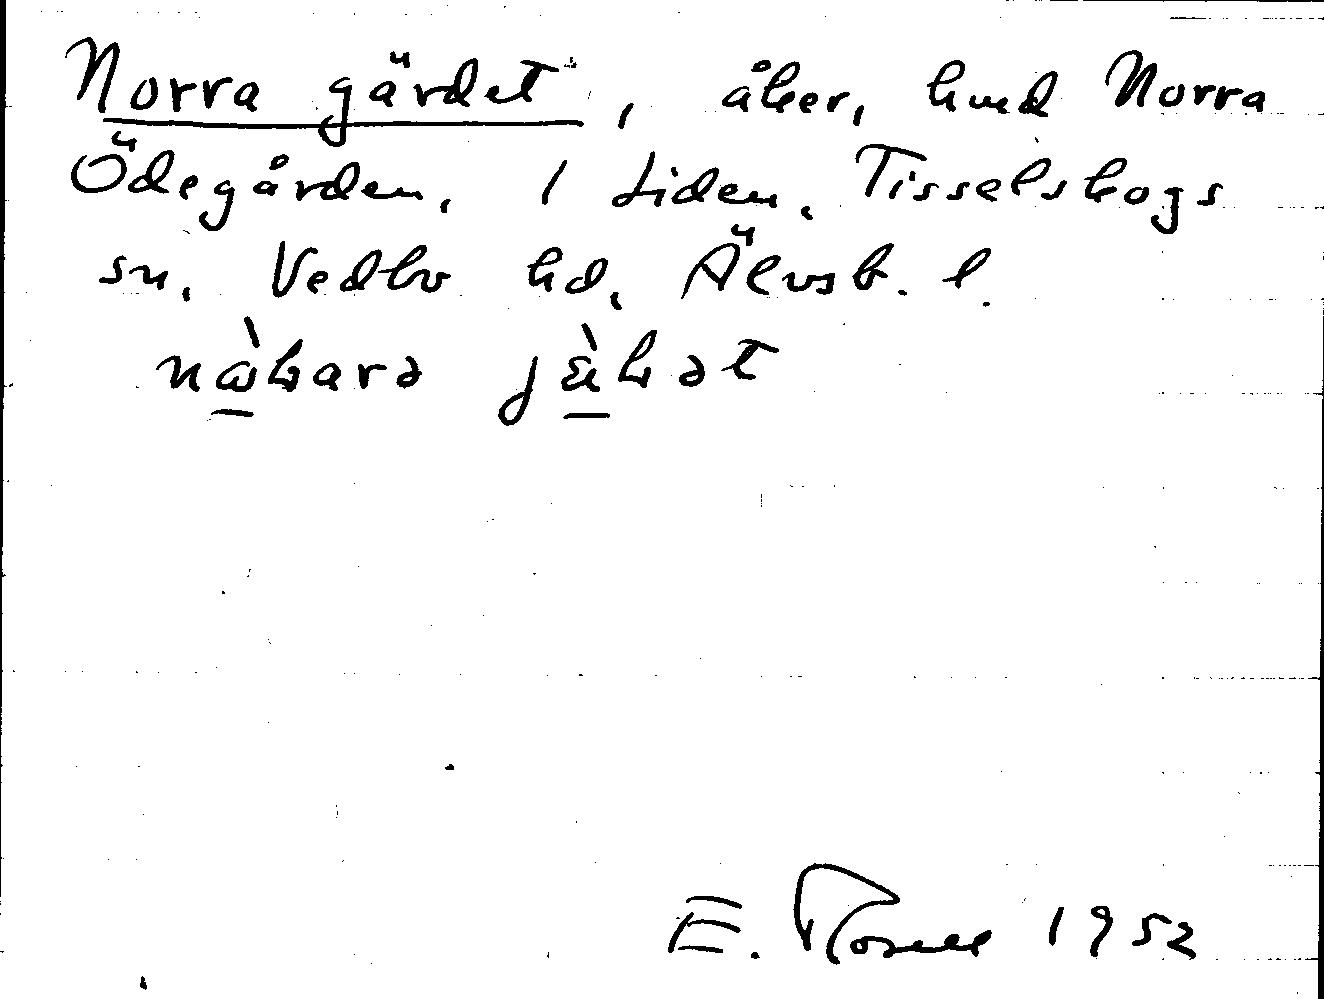 Norra gärdet, åker, hmd Norra
Ödegården, 1 Liden, Tisselskogs
sn, Vedbo hd, Älvsb. l.
E. Rosell 1952